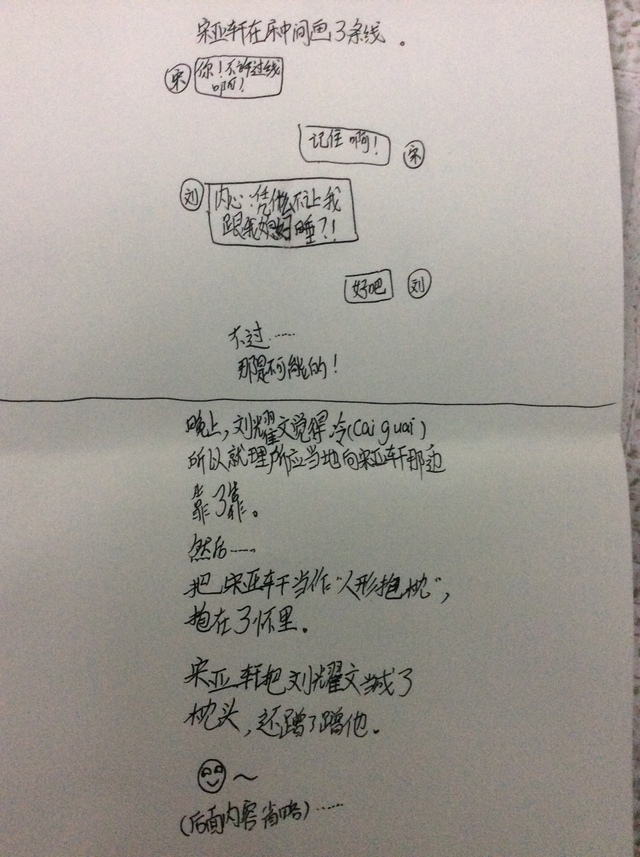 宋亚轩在床中间画了条线。
宋 你!不许过线
啊!
记住啊! 宋
刘 内心:凭什么不让我
跟我好睡?!
好吧 刘
不过……
那是不可能的!
晚上,刘耀文觉得冷(cai guai)
所以就理所应当地向宋亚轩那边
靠了靠。
然后……
把宋亚轩当作“人形抱枕”,
抱在了怀里。
宋亚轩把刘耀文当成了
枕头,还蹭了蹭他。
~
(后面内容省略)……